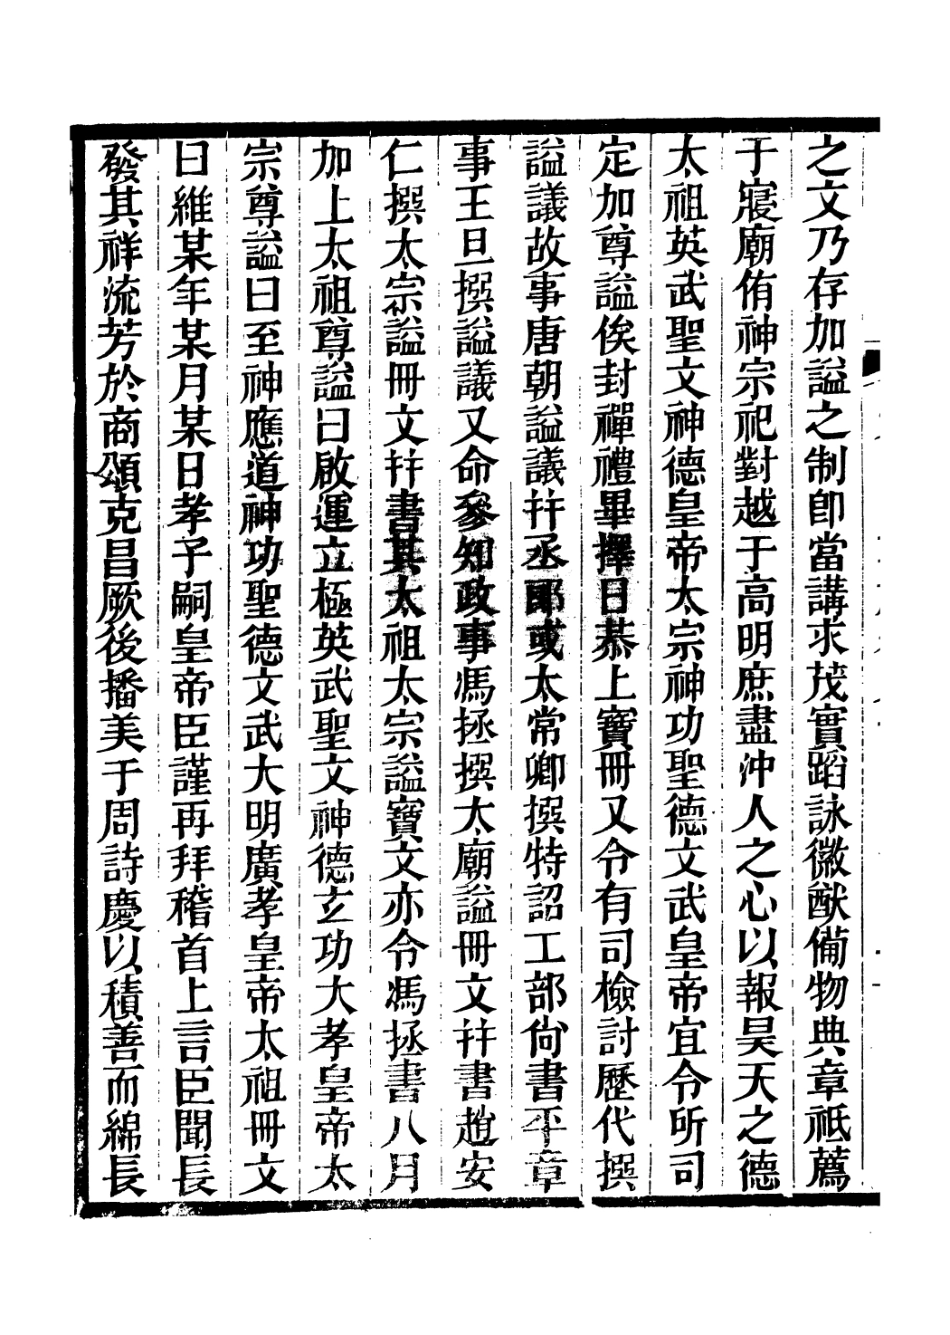 之文乃存加謚之制卽當講求茂實蹈詠徽猷備物典章祗薦
于寢廟侑神宗祀對越于高明庶盡沖人之心以報昊天之德
太祖英武聖文神德皇帝太宗神功聖德文武皇帝宜令所司
定加尊謚俟封禪禮畢擇日恭上寶冊又令有司檢討歷代撰
謚議故事唐朝謚議幷丞郎或太常卿撰特詔工部尙書平章
事王旦撰謚議又命參知政事馮拯撰太廟謚冊文幷書趙安
仁撰太宗謚冊文幷書其太祖太宗謚寶文亦令馮拯書八月
加上太祖尊謚曰啟運立極英武聖文神德玄功大孝皇帝太
宗尊謚曰至神應道神功聖德文武大明廣孝皇帝太祖冊文
曰維某年某月某日孝子嗣皇帝臣謹再拜稽首上言臣聞長
發其祥流芳於商頌克昌厥後播美于周詩慶以積善而綿長